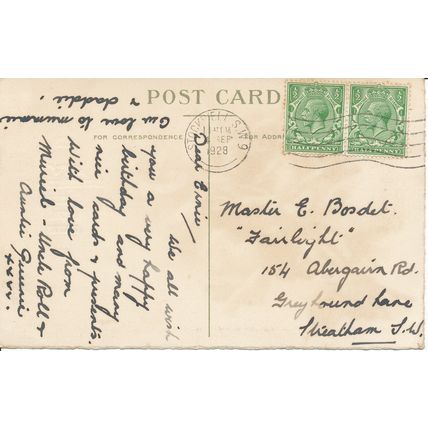 POST CARD
FOR CORRESPONDENCE
FOR ADDR
STOCKWELL S.W.9
SEP
1928
HALFPENNY
HALFPENNY
Dear Ernie
We all wish
you a very happy
birthday and many
nice cards & presents.
With love from
Muriel - Uncle Roll &
Auntie
xxxx.
Our love to mummie
& daddie.
Master E. Bosdet.
"Fairlight"
154 Abergairn Rd.
Greyhound Lane
Streatham S.W.